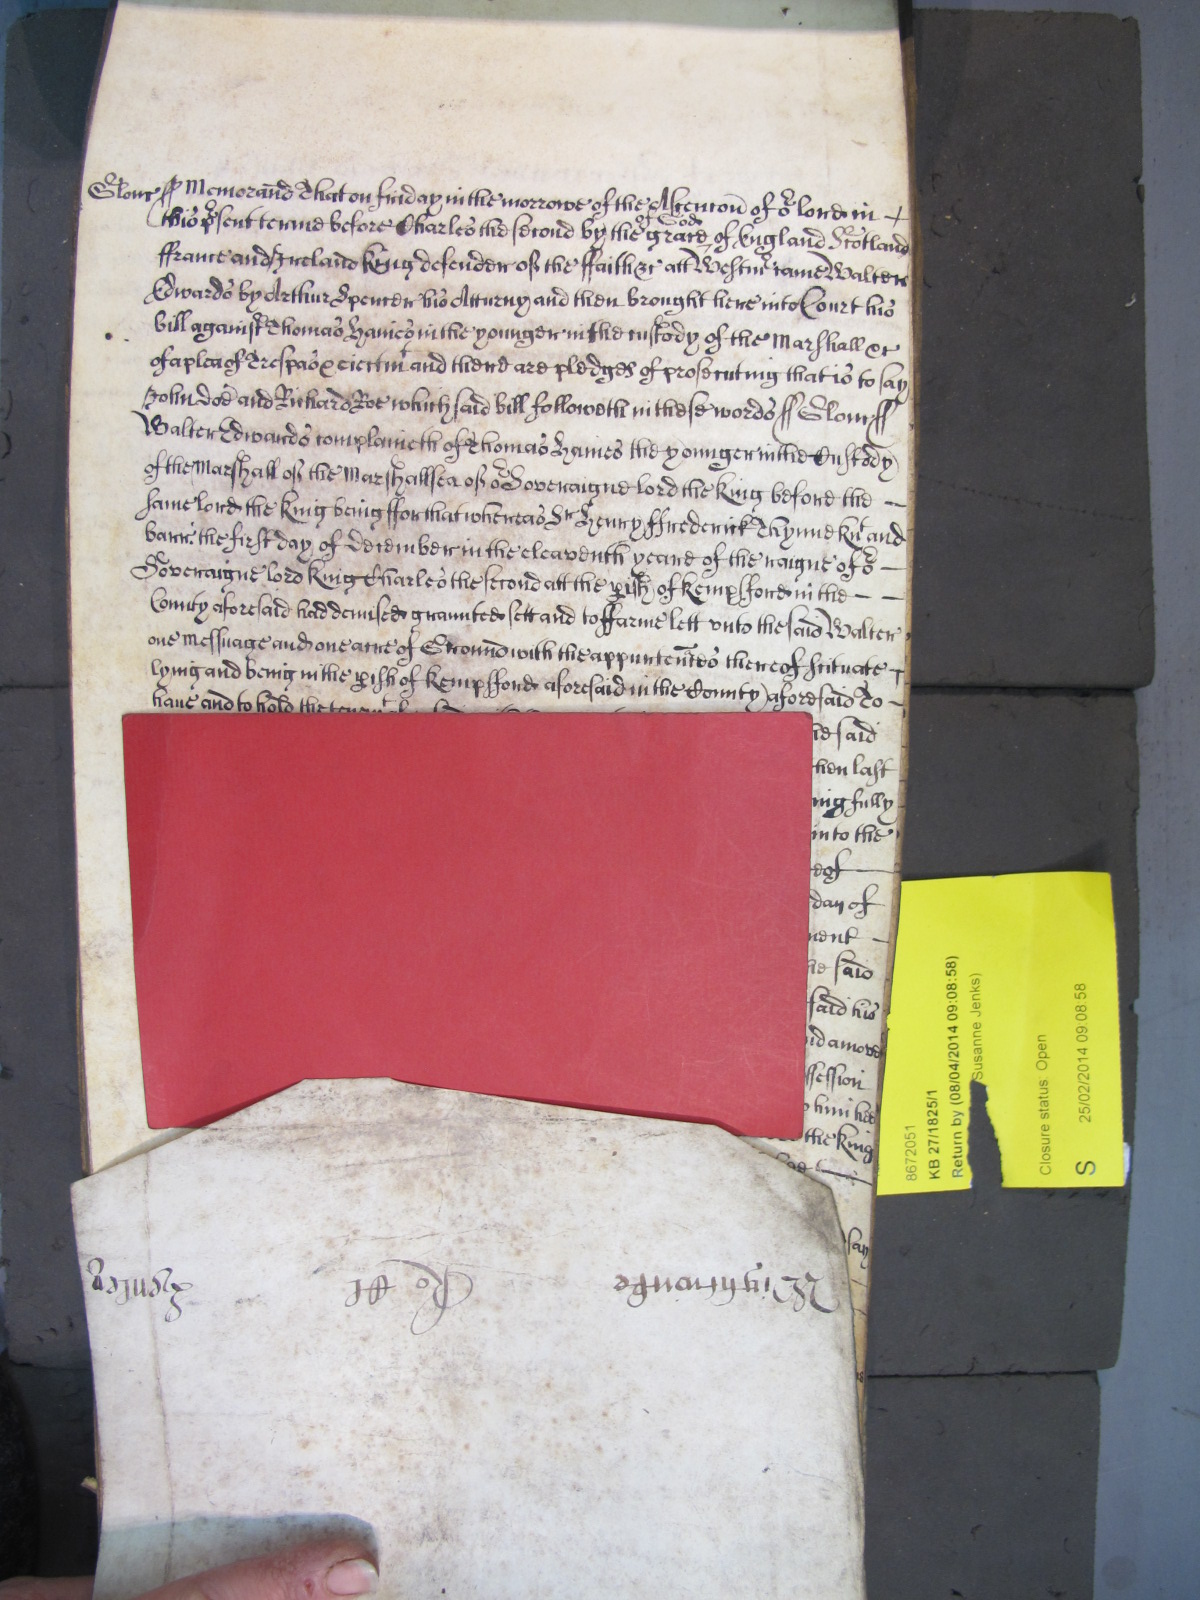 Glouc ss Memorand That on friday in the morrowe of the Ascention of or lord in
this psent terme before Charles the second by the grace of God of England Scotland
ffrance and Ireland King defender of the ffaith &c att Westmr came Walter
Edwards by Arthur Spencer his Atturny and then brought here into Court his
bill against Thomas Haines the younger in the custody of the Marshall &c
of a plea of Trespas & eiectmt and there are pledges of prosecuting that is to say
John Doe and Richard Roe which said bill followeth in these words ss Glouc ss
Walter Edwards complaineth of Thomas Haines the younger in the Custody
of the Marshall of the Marshallsea of or Soveraigne lord the King before the
same lord the King being ffor that whereas Sr Henry ffrederick Thynne Knt and
barrt the first day of December in the eleaventh yeare of the raigne of or
Soveraigne lord King Charles the second att the pish of Kempsford in the
County aforesaid had demised graunted sett and to ffarme lett unto the said Walter
one messuage and one acre of Ground with the appurtenñces thereof scituate
lying and being in the pish of Kempsford aforesaid in the County aforesaid To
have and to hold the
said
then last
fully
into the
day of
said
said his
the King
say
Wightwicke
Ro
8672051
KB 27/1825/1
Return by (08/04/2014 09:08:58)
Susanne Jenks)
Closure status: Open
S
25/02/2014 09:08:58